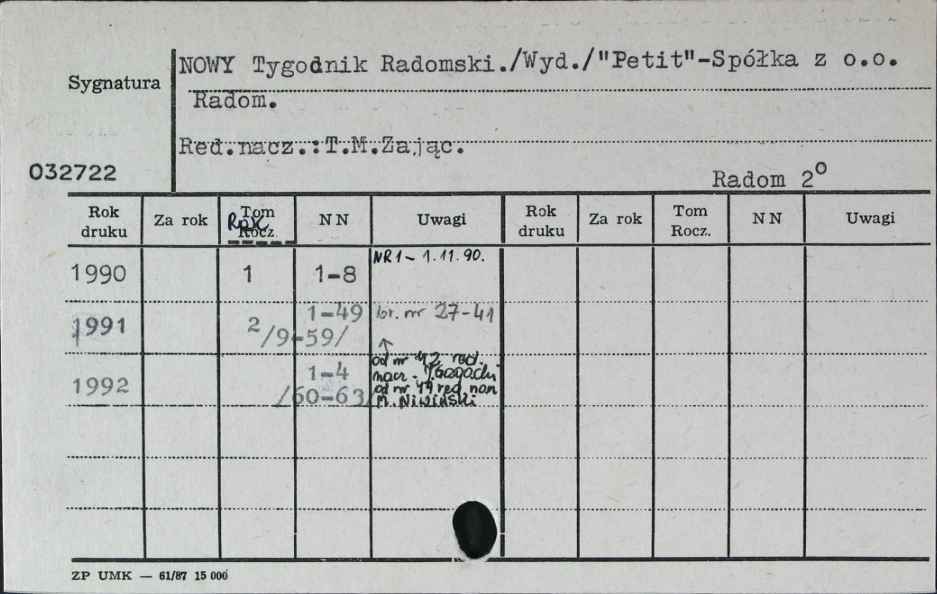 NOWY Tygodnik Radomski./Wyd./"Petit"-Spółka z o.o.
Sygnatura
Radom.
Red.nacz.:T.M.Zając.
032722
Radom 2°
Rok druku Za rok Tom Rocz. Rok NN Uwagi Rok druku Za rok Tom Rocz. NN Uwagi
1990 1 1-8 NR 1 - 1.11.90.
1991 2 /9-59/ 1-49 br. nr 27-41
od nr 42 red.
nacz.
1992 1-4 /60-63/
od nr 49 red. nan
M. Niwiński
ZP UMK — 61/87 15 000